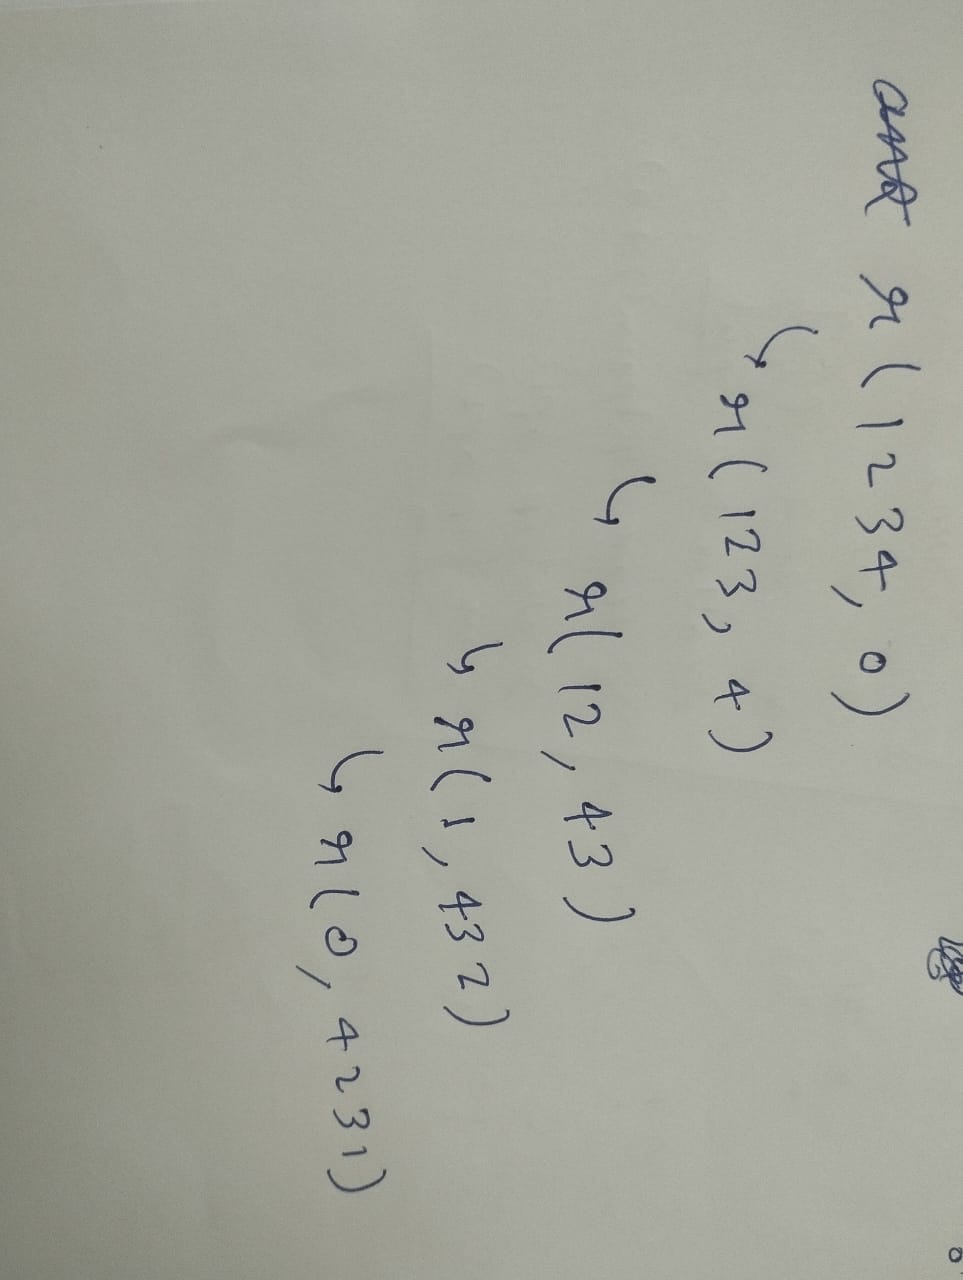 r(1234, 0)
r(123, 4)
r(12, 43)
r(1, 432)
r(0, 4231)